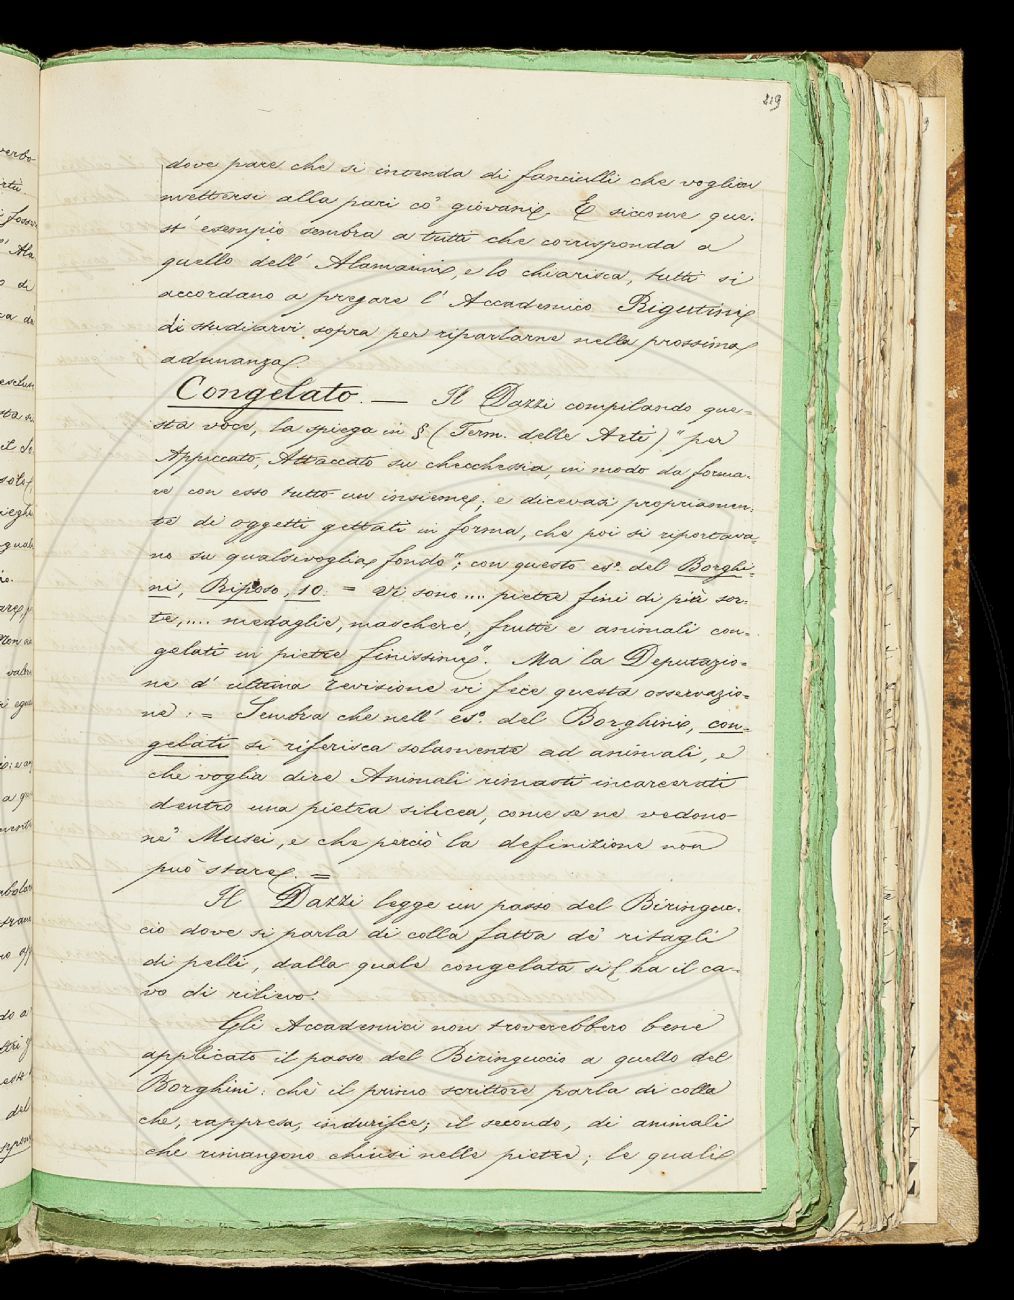 219
dove pare che si intenda di fanciulli che voglion
mettersi alla pari co' giovani. E siccome que-
st' esempio sembra a tutti che corrisponda a
quello dell' Alamanni, e lo chiarisca, tutti si
accordano a pregare l' Accademico Rigutini
di studiarvi sopra per riparlarne nella prossima
adunanza.
Congelato. — Il Dazzi compilando que-
sta voce, la spiega in § (Term. delle Arti) "per
Appiccato, Attaccato su checchessia, in modo da forma-
re con esso tutto un insieme; e dicevasi propriamen-
te di oggetti gettati in forma, che poi si riportava-
no su qualsivoglia fondo"; con questo es°. del Borghi-
ni, Riposo, 10. = Vi sono .... pietre fini di più sor-
te, .... medaglie, maschere, frutte e animali con-
gelati in pietre finissime". Ma la Deputazio-
ne d' ultima revisione vi fece questa osservazio-
ne: = Sembra che nell' es°. del Borghini, con-
gelati si riferisca solamente ad animali, e
che voglia dire Animali rimasti incarcerati
dentro una pietra silicea, come se ne vedono
ne' Musei, e che perciò la definizione non
può stare. =
Il Dazzi legge un passo del Biringuc-
cio dove si parla di colla fatta de' ritagli
di pelli, dalla quale congelata si ha il ca-
vo di rilievo.
Gli Accademici non troverebbero bene
applicato il passo del Biringuccio a quello del
Borghini: chè il primo scrittore parla di colla
che, rappresa, indurisce; il secondo, di animali
che rimangono chiusi nelle pietre; le quali